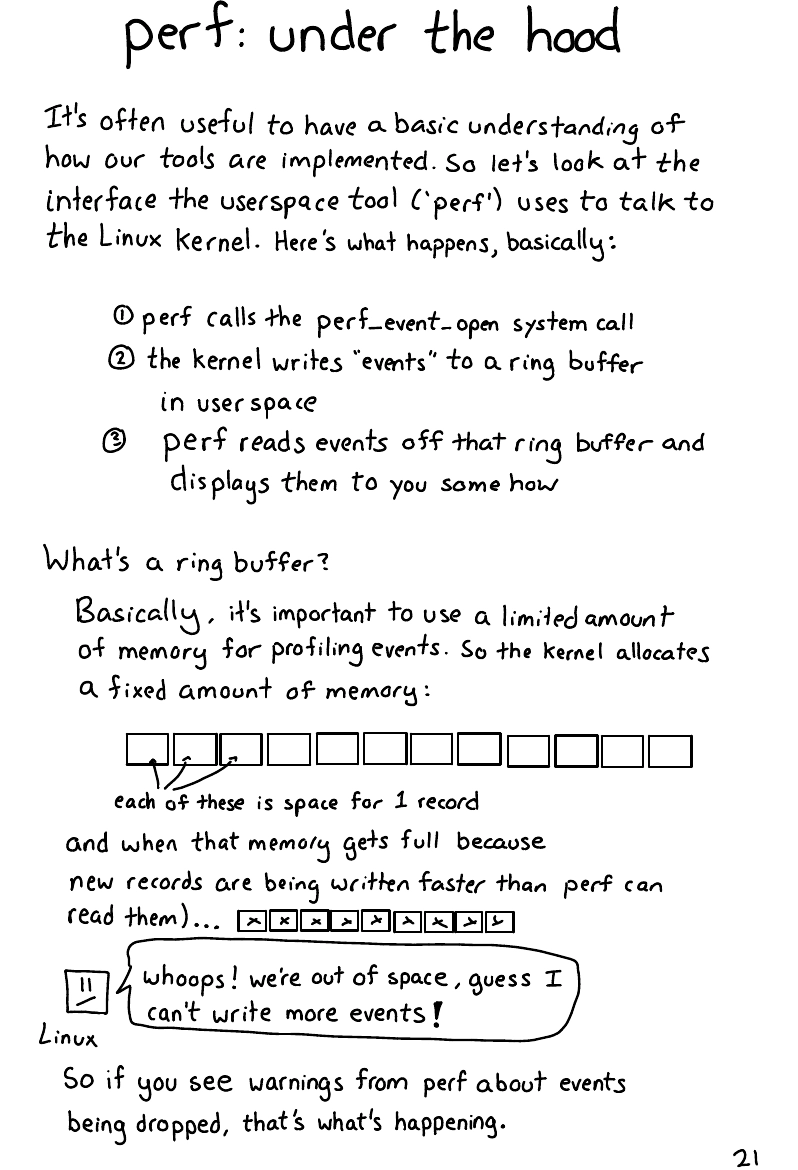 perf: under the hood
It's often useful to have a basic understanding of
how our tools are implemented. So let's look at the
interface the userspace tool ('perf') uses to talk to
the Linux kernel. Here's what happens, basically:
① perf calls the perf_event_open system call
② the kernel writes "events" to a ring buffer
in userspace
③ perf reads events off that ring buffer and
displays them to you some how
What's a ring buffer?
Basically, it's important to use a limited amount
of memory for profiling events. So the kernel allocates
a fixed amount of memory:
each of these is space for 1 record
and when that memory gets full because
new records are being written faster than perf can
read them)...
whoops! we're out of space, guess I
can't write more events!
Linux
So if you see warnings from perf about events
being dropped, that's what's happening.
21